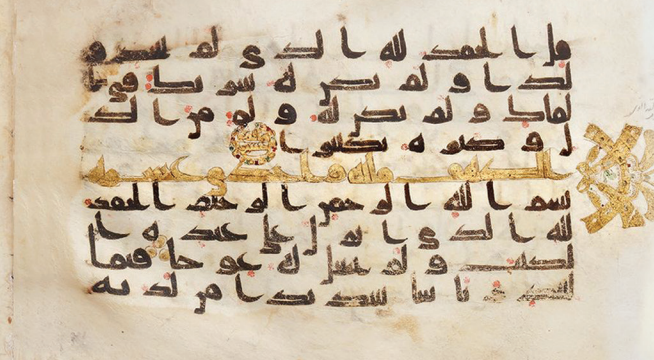 قل الحمد لله الذي لم يتخذ و
لدا و لم يكن له شريك في ا
لملك و لم يكن له و لي من الذ
ل و كبره تكبيرا
بسم الله الرحمن الرحيم الحمد
لله الذي انزل على عبده ا
لكتب و لم يجعل له عوجا قيما
لينذر باسا شديدا من لدنه